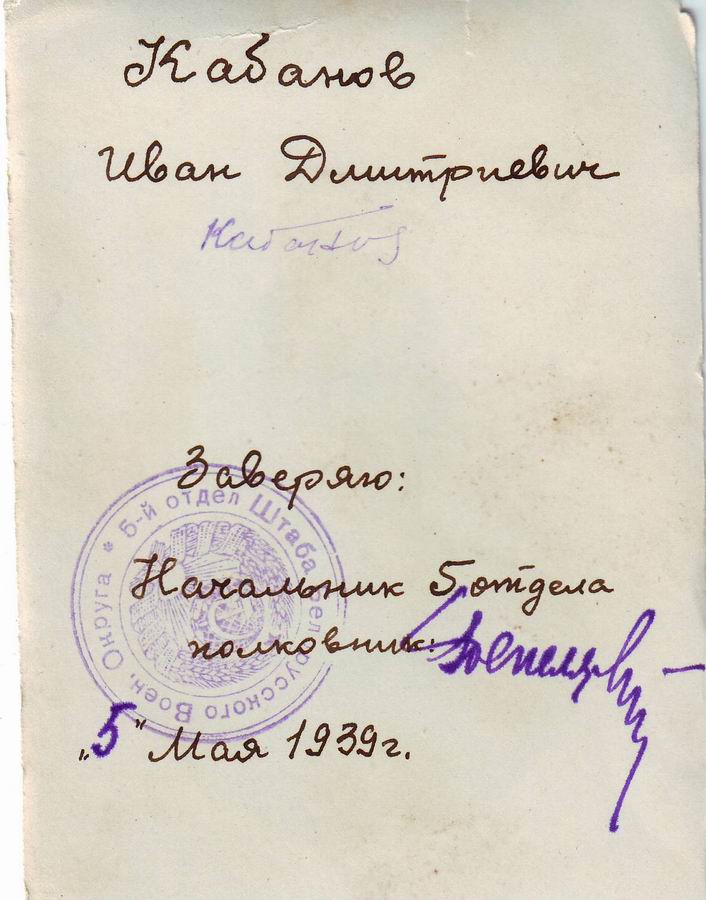 Кабанов
Иван Дмитриевич
Кабанов
Заверяю:
5-й отдел Штаба Белорусского Воен. Округа *
Начальник 5 отдела
полковник:
„5" Мая 1939г.